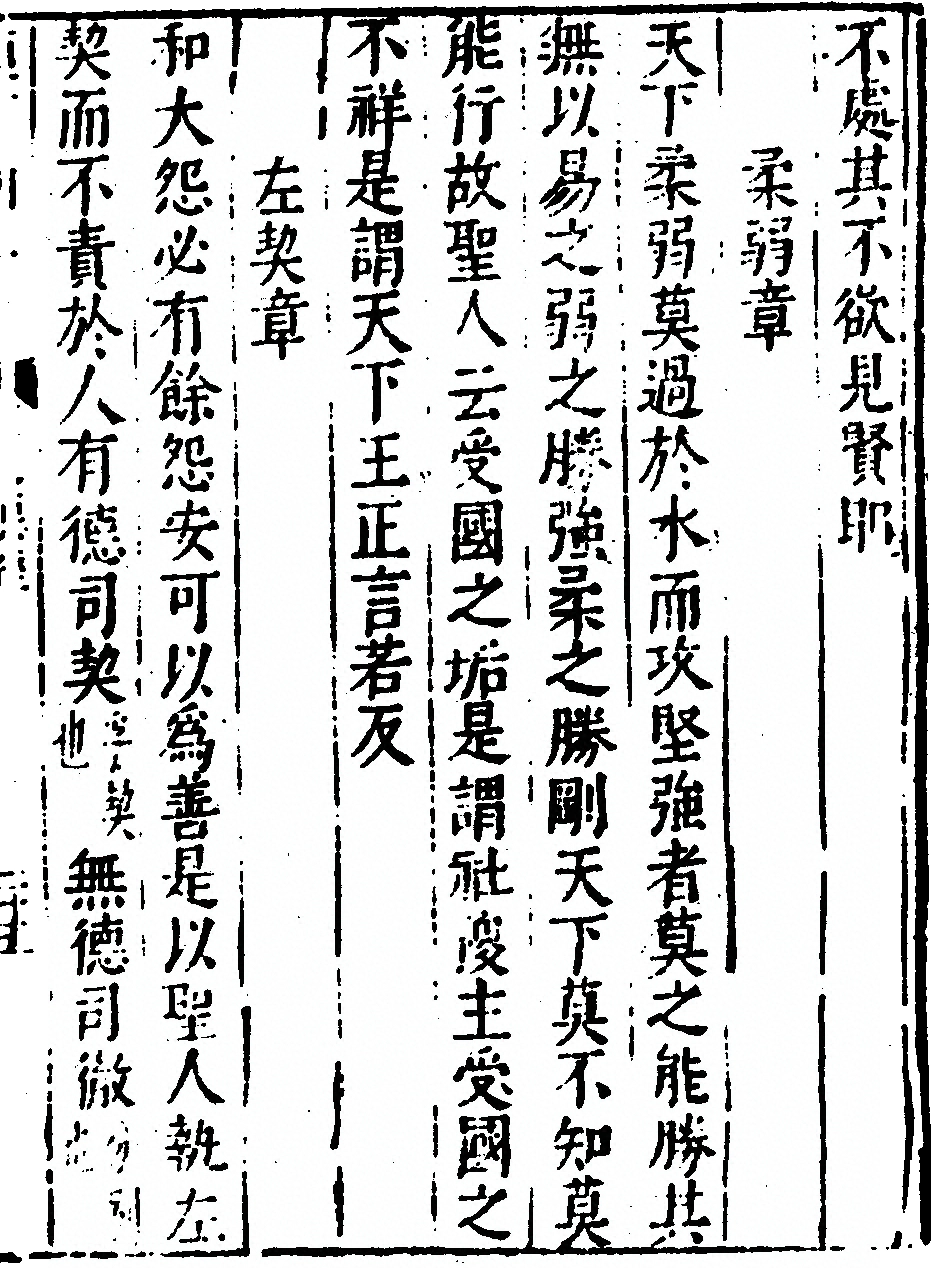 不處其不欲見賢耶
柔弱章
天下柔弱莫過於水而攻堅強者莫之能勝其
無以易之弱之勝強柔之勝剛天下莫不知莫
能行故聖人云受國之垢是謂社稷主受國之
不祥是謂天下王正言若反
左契章
和大怨必有餘怨安可以為善是以聖人執左
契而不責於人有德司契
契
也
無德司徹